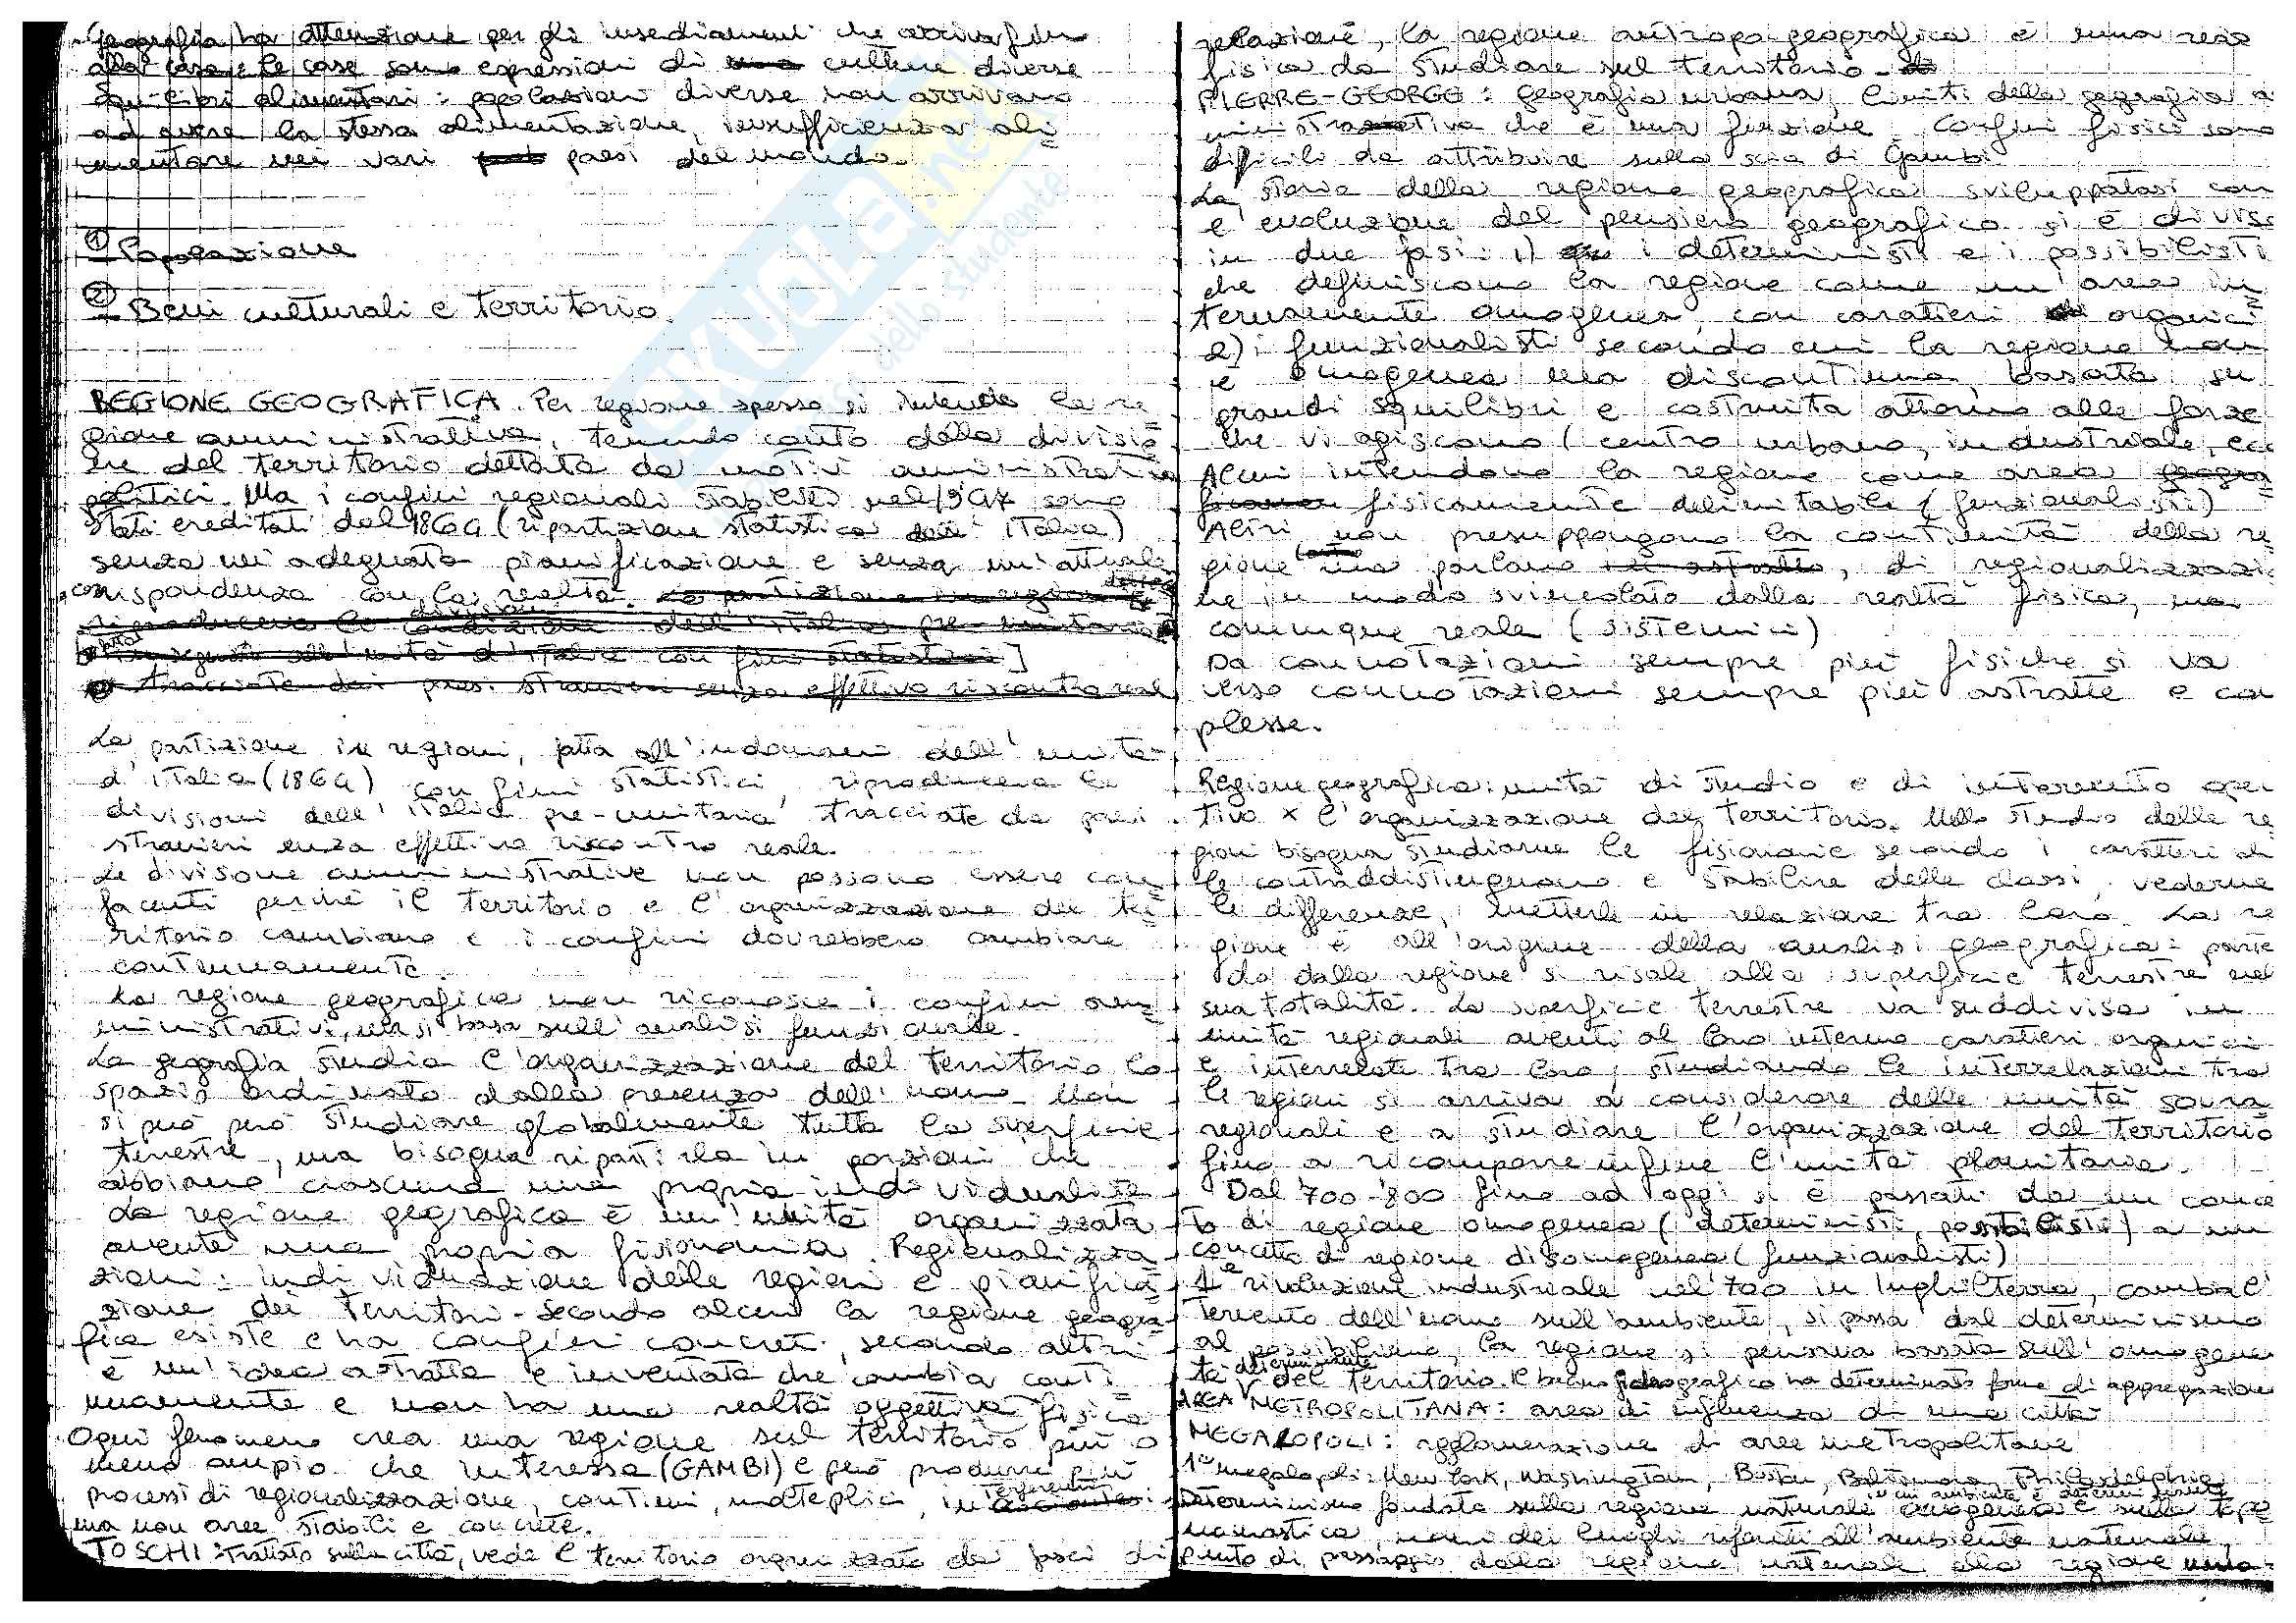 Geografia ha attenzione per gli insediamenti che arriva fin
alla casa e le case sono espressioni di culture diverse
Squilibri alimentari: popolazioni diverse non arrivano
ad avere la stessa alimentazione, insufficienza ali
mentare nei vari paesi del mondo.
① Popolazione
② Beni culturali e territorio.
REGIONE GEOGRAFICA. Per regione spesso si intende la re
gione amministrativa, tenendo conto della divisio
ne del territorio dettata da motivi amministrativi
politici. Ma i confini regionali stabiliti nel 1947 sono
stati ereditati dal 1864 (ripartizione statistica dell'Italia)
senza un'adeguata pianificazione e senza un'attuale
corrispondenza con la realtà.
La partizione in regioni, fatta all'indomani dell'unità
d'Italia (1864) con fini statistici, riproduceva le
divisioni dell'Italia pre-unitaria tracciate da paesi
stranieri senza effettivo riscontro reale.
Le divisione amministrative non possono essere con
facenti perché il territorio e l'organizzazione del ter
ritorio cambiano e i confini dovrebbero cambiare
continuamente.
La regione geografica non riconosce i confini am
ministrativi, ma si basa sull'analisi funzionale.
La geografia studia l'organizzazione del territorio lo
spazio ordinato dalla presenza dell'uomo. Non
si può però studiare globalmente tutta la superficie
terrestre, ma bisogna ripartirla in porzioni che
abbiano ciascuna una propria individualità
La regione geografica è un'unità organizzata
avente una propria fisionomia. Regionalizza
zioni: individuazione delle regioni e pianifica
zione dei territori. Secondo alcuni la regione geogra
fica esiste e ha confini concreti, secondo altri
è un'idea astratta e inventata che cambia conti
nuamente e non ha una realtà oggettiva fisica
Ogni fenomeno crea una regione sul territorio più o
meno ampio che interessa (GAMBI) e può produrre più
processi di regionalizzazione, continui, molteplici, interferenti
ma non aree stabili e concrete.
TOSCHI: Trattato sulla città, vede il territorio organizzato da fasci di
relazione, la regione antropogeografica è una real
fisica da studiare sul territorio.
PIERRE-GEORGE: geografia urbana, limiti della geografia a
ministrativa che è una funzione. Confini fisici sono
difficili da attribuire sulla scia di Gambi
La storia della regione geografica sviluppatasi con
l'evoluzione del pensiero geografico si è divisa
in due fasi: 1) i deterministi e i possibilisti
che definiscono la regione come un'area in
ternamente omogenea, con caratteri organici
2) i funzionalisti secondo cui la regione non
è omogenea ma discontinua, basata su
grandi squilibri e costruita attorno alle forze
che vi agiscono (centro urbano, industriale, ecc
Alcuni intendono la regione come area geogra
fisicamente delimitabile (funzionalisti)
Altri non presuppongono la continuità della re
gione ma parlano, di regionalizzazio
ne in modo svincolato dalla realtà fisica, ma
comunque reale (sistemici)
Da connotazioni sempre più fisiche si va
verso connotazioni sempre più astratte e com
plesse.
Regione geografica: unità di studio e di intervento oper
tivo x l'organizzazione del territorio. Nello studio delle re
gioni bisogna studiarne le fisionomie secondo i caratteri ch
le contraddistinguono e stabilire delle classi, vederne
le differenze, metterle in relazione tra loro. La re
gione è all'origine della analisi geografica: parte
do dalla regione si risale alla superficie terrestre nel
sua totalità. La superficie terrestre va suddivisa in
unità regionali aventi al loro interno caratteri organici
e interrelati tra loro; studiando le interrelazioni tra
le regioni si arriva a considerare delle unità sovra
regionali e a studiare l'organizzazione del territorio
fino a ricomporre infine l'unità planetaria.
Dal '700-'800 fino ad oggi si è passati da un conce
to di regione omogenea (deterministi, possibilisti) a un
concetto di regione disomogenea (funzionalisti)
1ª rivoluzione industriale nel '700 in Inghilterra, cambia l'
tervento dell'uomo sull'ambiente, si passa dal determinismo
al possibilismo, la regione si pensava basata sull'omogenei
tà del territorio. Il bacino idrografico ha determinato forme di aggregazione
AREA METROPOLITANA: area di influenza di una città
MEGALOPOLI: agglomerazione di aree metropolitane
1ª megalopoli: New York, Washington, Boston, Baltimora, Philadelphia
Determinismo fondato sulla regione naturale omogenea e sulla topo
nomastica, nomi dei luoghi riferiti all'ambiente naturale,
punto di passaggio dalla regione naturale alla regione uma